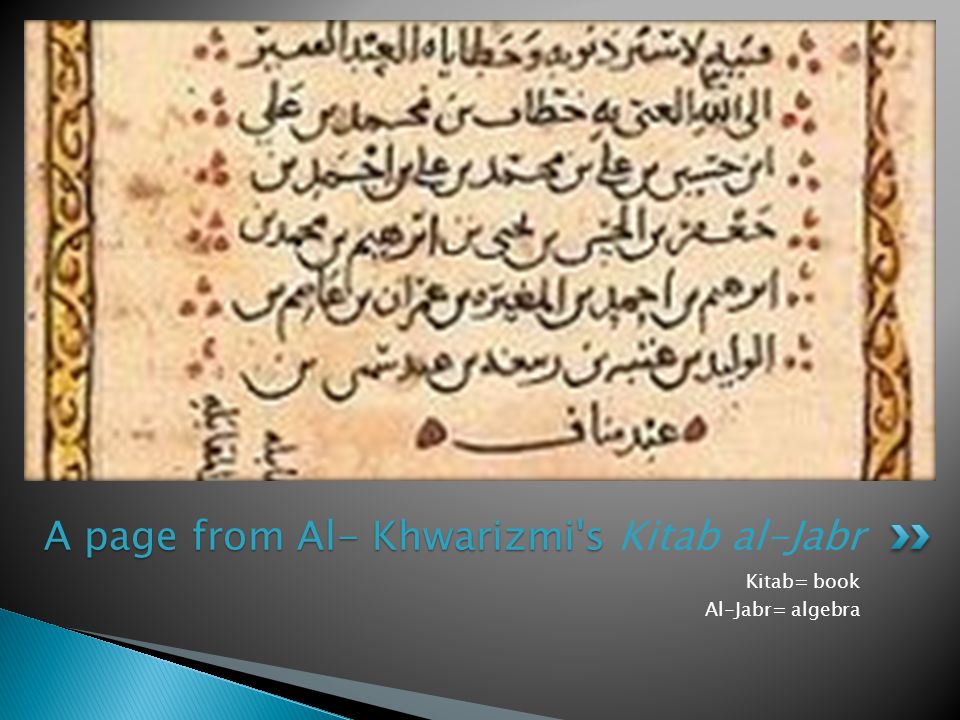 لاستر ذنوبه وخطاياه العبد الفقير
الى الله الغني به خطاب بن محمد بن علي
ابن حسين بن علي بن محمد بن علي بن احمد بن
جعفر بن بن يحيى بن ابرهيم بن محمد بن
ابرهيم بن احمد بن المغيره بن عمران بن عاصم بن
الوليد بن عتبه بن ربيعه بن عبد شمس بن
عبد مناف
A page from Al- Khwarizmi's Kitab al-Jabr
Kitab= book
Al-Jabr= algebra